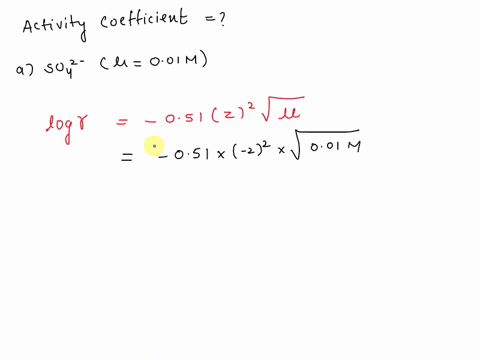 Activity coefficient = ?
a) SO₄²⁻ ( μ = 0.01 M )
log γ = - 0.51 (z)² √μ
= - 0.51 × (-2)² × √0.01 M